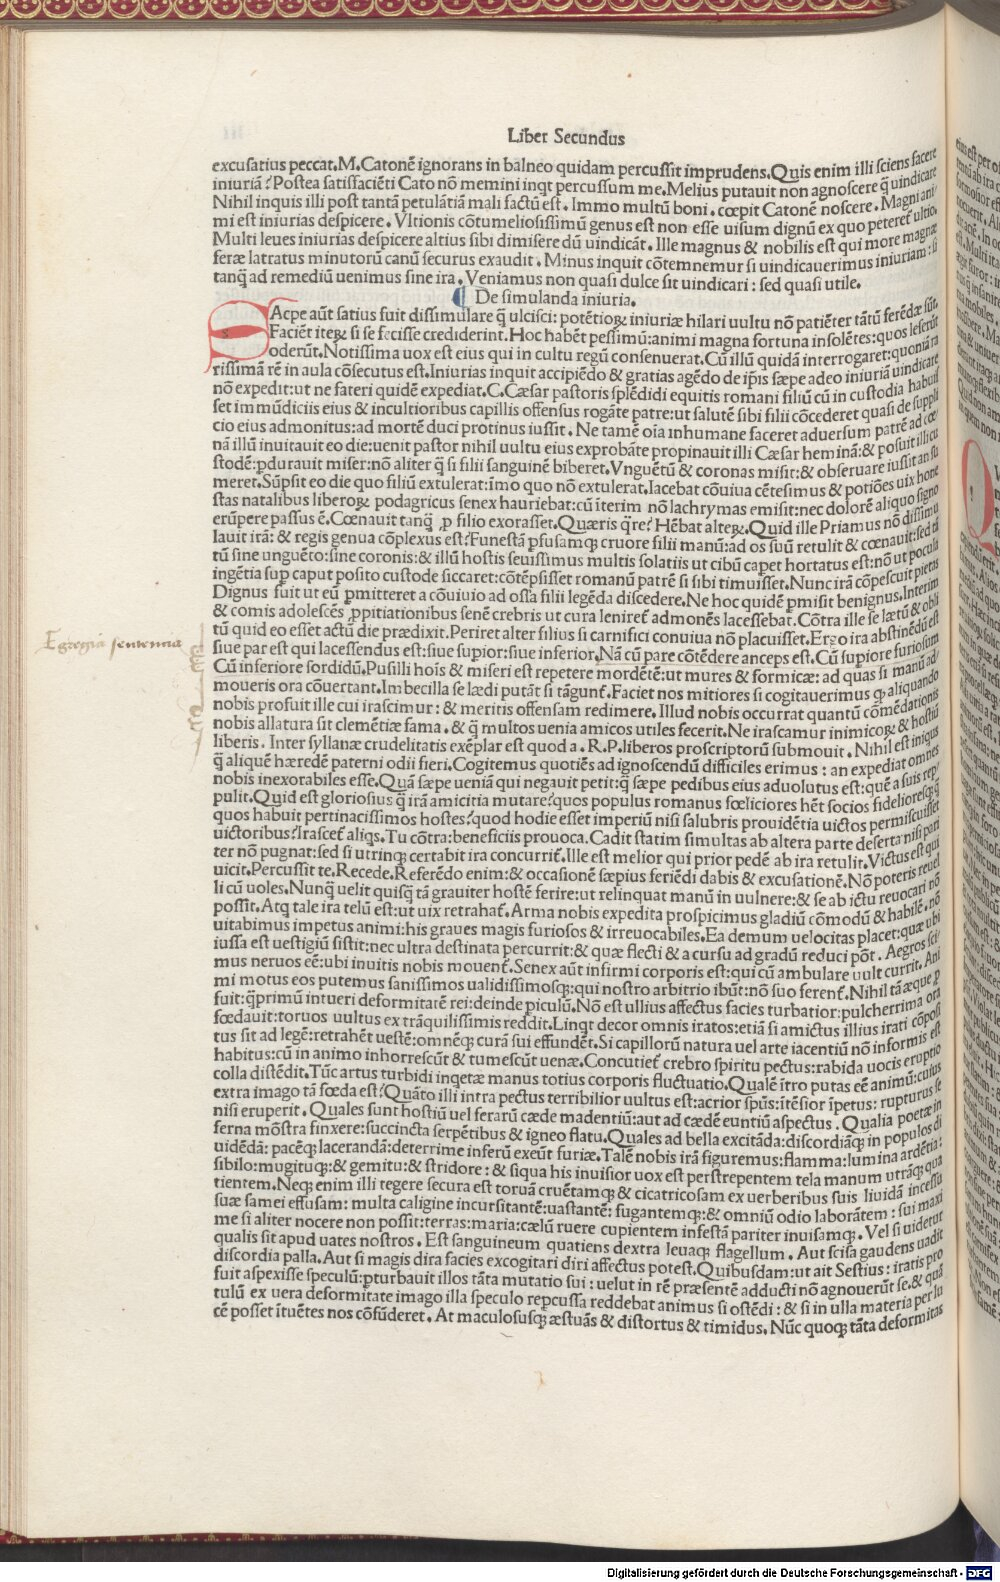 Liber Secundus
excusatius peccat. M. Catonē ignorans in balneo quidam percussit imprudens. Quis enim illi sciens facere
iniuriā? Postea satisfaciēti Cato nō memini inqt percussum me. Melius putauit non agnoscere q̄ uindicare
Nihil inquis illi post tantā petulātiā mali factū est. Immo multū boni. cœpit Catonē noscere. Magni ani
mi est iniurias despicere. Vltionis cōtumeliosissimū genus est non esse uisum dignū ex quo peteret̄ ultio.
Multi leues iniurias despicere altius sibi dimisere dū uindicāt. Ille magnus & nobilis est qui more magnæ
feræ latratus minutorū canū securus exaudit. Minus inquit cōtemnemur si uindicauerimus iniuriam: si
tanq̄ ad remediū uenimus sine ira. Veniamus non quasi dulce sit uindicari: sed quasi utile.
De simulanda iniuria.
SAepe aūt satius fuit dissimulare q̄ ulcisci: potētioꝝ iniuriæ hilari uultu nō patiēter tātū ferēdæ sūt.
Faciēt iteꝝ si se fecisse crediderint. Hoc habēt pessimū: animi magna fortuna insolētes: quos leserūt
& oderūt. Notissima uox est eius qui in cultu regū consenuerat. Cū illū quidā interrogaret: quoniā ra
rissimā rē in aula cōsecutus est. Iniurias inquit accipiēdo & gratias agēdo de ip̄is sæpe adeo iniuriā uindicare
nō expedit: ut ne fateri quidē expediat. C. Cæsar pastoris splēdidi equitis romani filiū cū in custodia habuis
set immūdiciis eius & incultioribus capillis offensus rogāte patre: ut salutē sibi filii cōcederet quasi de suppli
cio eius admonitus: ad mortē duci protinus iussit. Ne tamē oīa inhumane faceret aduersum patrē ad cœ
nā illū inuitauit eo die: uenit pastor nihil uultu eius exprobāte propinauit illi Cæsar heminā: & posuit illi cu
stodē: pdurauit miser: nō aliter q̄ si filii sanguinē biberet. Vnguētū & coronas misit: & obseruare iussit an su
meret. Sūpsit eo die quo filiū extulerat: imo quo nō extulerat. Iacebat cōuiua cētesimus & potiōes uix hone
stas natalibus liberoꝝ podagricus senex hauriebat: cū īterim nō lachrymas emisit: nec dolorē aliquo signo
erūpere passus ē. Cœnauit tanq̄ p filio exorasset. Quæris q̄re? Hēbat alteꝝ. Quid ille Priamus nō dissimu
lauit irā: & regis genua cōplexus est? Funestā pfusamqꝫ cruore filii manū: ad os suū retulit & cœnauit: sed tā
tū sine unguēto: sine coronis: & illū hostis seuissimus multis solatiis ut cibū capet hortatus est: nō ut pocula
ingētia sup caput posito custode siccaret: cōtēpsisset romanū patrē si sibi timuisset. Nunc irā cōpescuit pietas
Dignus fuit ut eū pmitteret a cōuiuio ad ossa filii legēda discedere. Ne hoc quidē pmisit benignus. Interim
& comis adolescēs ppitiationibus senē crebris ut cura leniret̄ admonēs lacessebat. Cōtra ille se lætū & obli
tū quid eo esset actū die prædixit. Periret alter filius si carnifici conuiua nō placuisset. Ergo ira abstinēdū est
siue par est qui lacessendus est: siue supior: siue inferior. Nā cū pare cōtēdere anceps est. Cū supiore furiosum
Cū inferiore sordidū. Pusilli hoīs & miseri est repetere mordētē: ut mures & formicæ: ad quas si manū ad
moueris ora cōuertant. Imbecilla se lædi putāt si tāgunt̄. Faciet nos mitiores si cogitauerimus qꝫ aliquando
nobis profuit ille cui irascimur: & meritis offensam redimere. Illud nobis occurrat quantū cōmēdationis
nobis allatura sit clemētiæ fama. & q̄ multos uenia amicos utiles fecerit. Ne irascamur inimicoꝝ & hostiū
liberis. Inter syllanæ crudelitatis exēplar est quod a. R. P. liberos proscriptorū submouit. Nihil est iniqus
q̄ aliquē hæredē paterni odii fieri. Cogitemus quotiēs ad ignoscendū difficiles erimus: an expediat omnes
nobis inexorabiles esse. Quā sæpe ueniā qui negauit petit: q̄ sæpe pedibus eius aduolutus est: quē a suis rep
pulit. Quid est gloriosius q̄ irā amicitia mutare? quos populus romanus fœliciores hēt socios fidelioresqꝫ q̄
quos habuit pertinacissimos hostes? quod hodie esset imperiū nisi salubris prouidētia uictos permiscuisset
uictoribus? Irascet̄ aliqs. Tu cōtra: beneficiis prouoca. Cadit statim simultas ab altera parte deserta nisi pari
ter nō pugnat: sed si utrinqꝫ certabit ira concurrit̄. Ille est melior qui prior pedē ab ira retulit. Victus est qui
uicit. Percussit te. Recede. Referēdo enim: & occasionē sæpius feriēdi dabis & excusationē. Nō poteris reuel
li cū uoles. Nunq̄ uelit quisq̄ tā grauiter hostē ferire: ut relinquat manū in uulnere: & se ab ictu reuocari nō
possit. Atq̄ tale ira telū est: ut uix retrahat̄. Arma nobis expedita prospicimus gladiū cōmodū & habilē. nō
uitabimus impetus animi: his graues magis furiosos & irreuocabiles. Ea demum uelocitas placet: quæ ubi
iussa est uestigiū sistit: nec ultra destinata percurrit: & quæ flecti & a cursu ad gradū reduci pōt. Aegros sci
mus neruos eē: ubi inuitis nobis mouent̄. Senex aūt infirmi corporis est: qui cū ambulare uult currit. Ani
mi motus eos putemus sanissimos ualidissimosqꝫ: qui nostro arbitrio ibūt: nō suo ferent̄. Nihil tā æque p
fuit: q̄primū intueri deformitatē rei: deinde piculū. Nō est ullius affectus facies turbatior: pulcherrima ora
fœdauit: toruos uultus ex trāquilissimis reddit. Linqt decor omnis iratos: etiā si amictus illius irati cōposi
tus sit ad legē: retrahēt uestē: omnēqꝫ curā sui effundēt. Si capillorū natura uel arte iacentiū nō informis est
habitus: cū in animo inhorrescūt & tumescūt uenæ. Concutiet̄ crebro spiritu pectus: rabida uocis eruptio
colla distēdit. Tūc artus turbidi inqetæ manus totius corporis fluctuatio. Qualē ītro putas eē animū: cuius
extra imago tā fœda est? Quāto illi intra pectus terribilior uultus est: acrior spūs: itēsior īpetus: rupturus se
nisi eruperit. Quales sunt hostiū uel ferarū cæde madentiū: aut ad cædē euntiū aspectus. Qualia poetæ in
ferna mōstra finxere: succincta serpētibus & igneo flatu. Quales ad bella excitāda: discordiāqꝫ in populos di
uidēdā: pacēqꝫ lacerandā: deterrime inferū exeūt furiæ. Talē nobis irā figuremus: flamma: lumina ardētia:
sibilo: mugituqꝫ: & gemitu: & stridore: & siqua his inuisior uox est perstrepentem tela manum utrāqꝫ qua
tientem. Neqꝫ enim illi tegere secura est toruā cruētamqꝫ & cicatricosam ex uerberibus suis liuidā incessu
suæ samei effusam: multa caligine incursitantē: uastantē: fugantemqꝫ: & omniū odio laborātem: sui maxi
me si aliter nocere non possit: terras: maria: cælū ruere cupientem infestā pariter inuisamqꝫ. Vel si uidetur
qualis sit apud uates nostros. Est sanguineum quatiens dextra leuaqꝫ flagellum. Aut scisa gaudens uadit
discordia palla. Aut si magis dira facies excogitari diri affectus potest. Quibusdam: ut ait Sestius: iratis pro
fuit aspexisse speculū: pturbauit illos tāta mutatio sui: uelut in rē præsentē adducti nō agnouerūt se. & quā
tulū ex uera deformitate imago illa speculo repcussa reddebat animus si ostēdi: & si in ulla materia per lu
cē posset ītuētes nos cōfūderet. At maculosusqꝫ æstuās & distortus & timidus. Nūc quoqꝫ tāta deformitas
Egregia sentencia
Digitalisierung gefördert durch die Deutsche Forschungsgemeinschaft - DFG